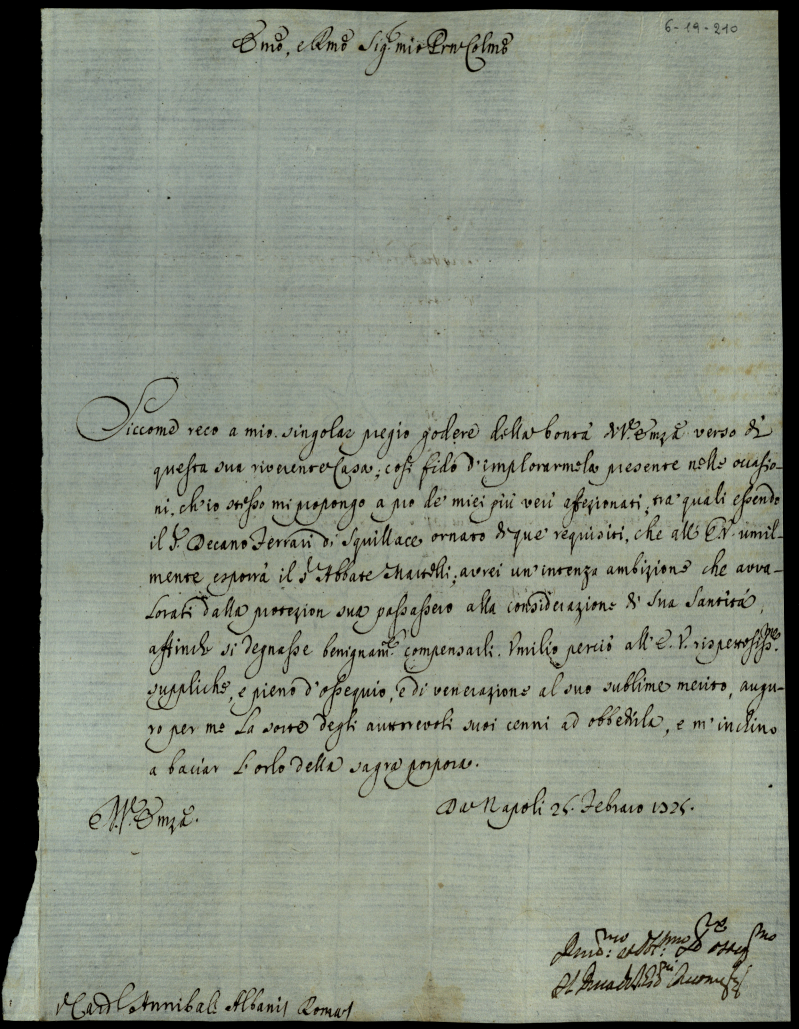 6-19-210
Emo, e Rmo Sig.r mio Prn Colmo
Siccome reco a mio singolar pregio godere della bontà di V.a Emza verso di
questa sua riverente Casa; così fido d'implorarmela presente nelle occasio-
ni, ch'io stesso mi propongo a pro de' miei più veri affezionati, tra quali essendo
il S.r Decano Ferrari di Squillace ornato di que' requisiti, che all'E.V. umil-
mente esporrà il S.r Abbate Martelli; avrei un'intenza ambizione che avva-
lorati dalla protezion sua passassero alla considerazione di Sua Santità,
affinche si degnasse benignam.te compensarli. Umilio perciò all'E.V. rispetosiss.me
suppliche, e pieno d'ossequio, e di venerazione al suo sublime merito, augu-
ro per me la sorte degli autorevoli suoi cenni ad obbedirla, e m'inchino
a baciar l'orlo della sagra porpora.
Di V.a Emza.
Da Napoli 25. Febraro 1325.
S.r Card.l Annibal. Albani Roma